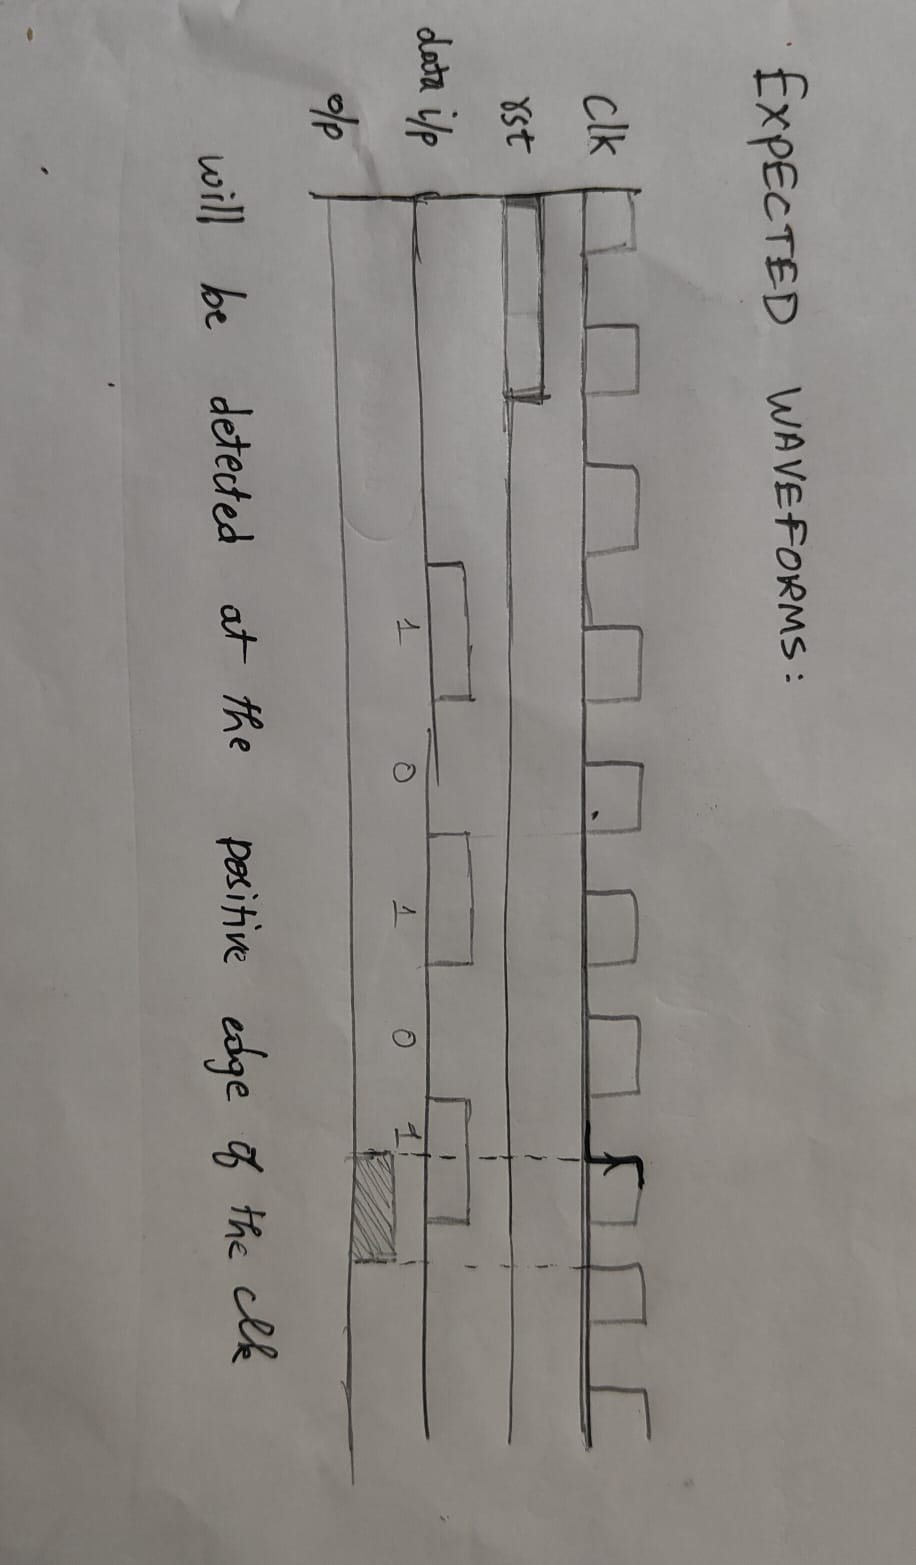 EXPECTED WAVEFORMS:
Clk
rst
data i/p
1 0 1 0 1
o/p
will be detected at the positive edge of the clk